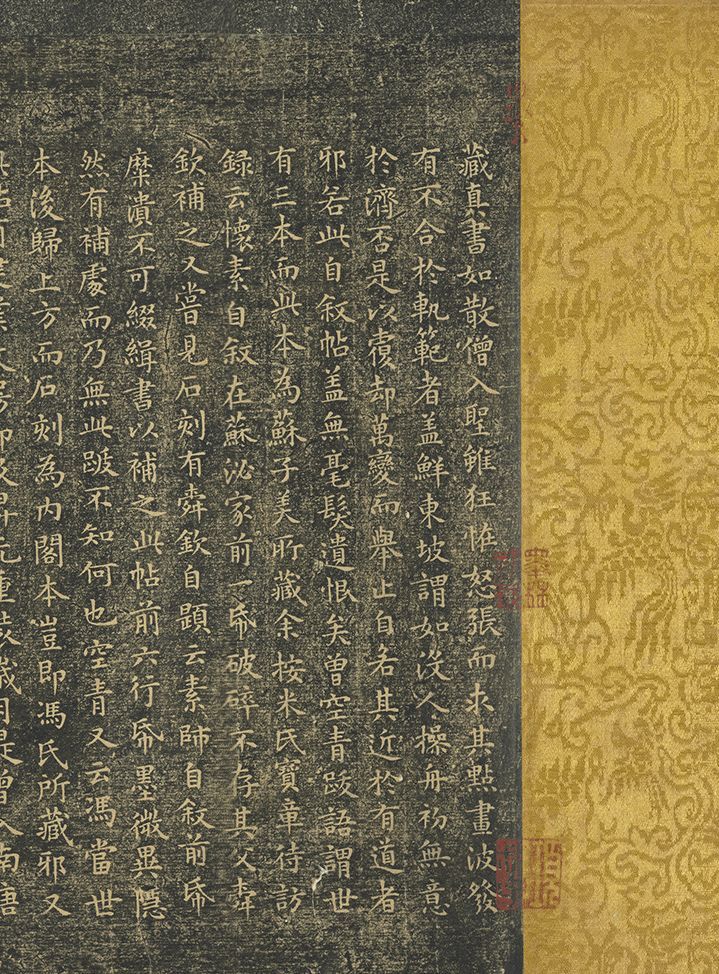 藏真書如散僧入聖雖狂恠怒張而求其點畫波發
有不合於軌範者盖鮮東坡謂如沒人操舟初無意
於濟否是以覆却萬變而舉止自若其近於有道者
邪若此自叙帖盖無毫髮遺恨矣曾空青跋語謂世
有三本而此本為蘇子美所藏余按米氏寶章待訪
録云懷素自叙在蘇泌家前一帋破碎不存其父舜
欽補之又嘗見石刻有舜欽自題云素師自叙前帋
糜潰不可綴緝書以補之此帖前六行帋墨微異隱
然有補處而乃無此跋不知何也空青又云馮當世
本後歸上方而石刻為內閣本豈即馮氏所藏邪又